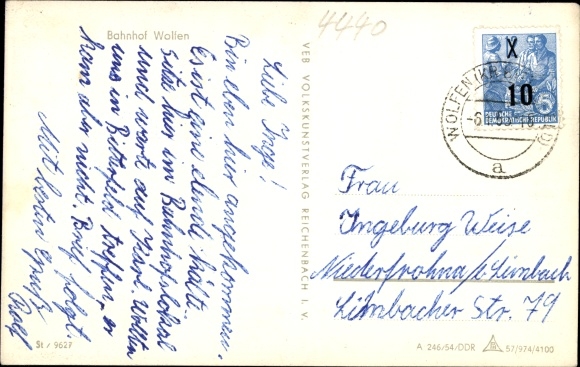 4440
Bahnhof Wolfen
Liebe Inge!
Bin eben hier angekommen.
Es ist eine elende Kälte.
Sitze hier im Bahnhofslokal
und warte auf Karl. Wollten
uns in Bitterfeld treffen, er
kam aber nicht. Brief folgt
Mit bestem Gruß
Rolf
St / 9627
VEB VOLKSKUNSTVERLAG REICHENBACH I. V.
X
10
5
DEUTSCHE
DEMOKRATISCHE REPUBLIK
WOLFEN (KR
-6.
a
Frau
Ingeburg Weise
Niederfrohna b/Limbach
Limbacher Str. 79
A 246/54/DDR 57/974/4100